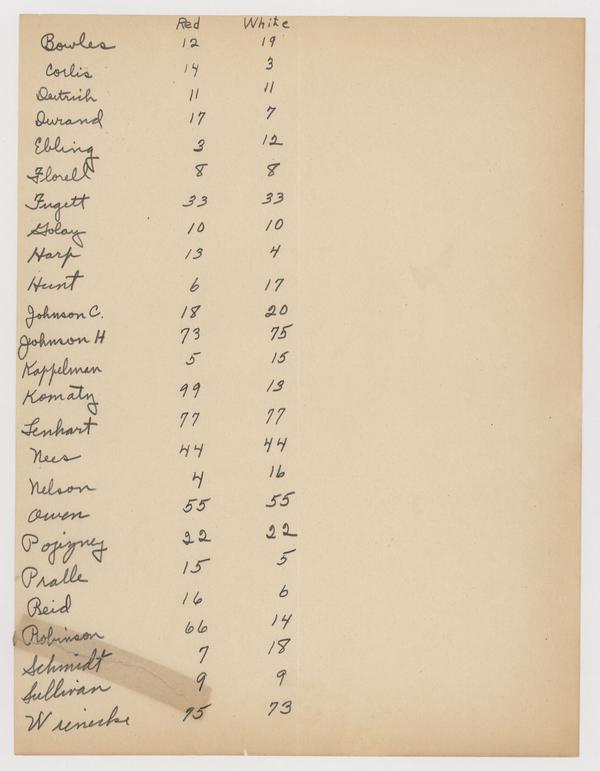 Red White
Bowles 12 19
Corlis 14 3
Deitrich 11 11
Durand 17 7
Ebling 3 12
Florell 8 8
Fugett 33 33
Golay 10 10
Harp 13 4
Hunt 6 17
Johnson C. 18 20
Johnson H 73 75
Kappelman 5 15
Komaty 99 13
Lenhart 77 77
Nees 44 44
Nelson 4 16
Owen 55 55
Pojizney 22 22
Pralle 15 5
Reid 16 6
Robinson 66 14
Schmidt 7 18
Sullivan 9 9
75 73